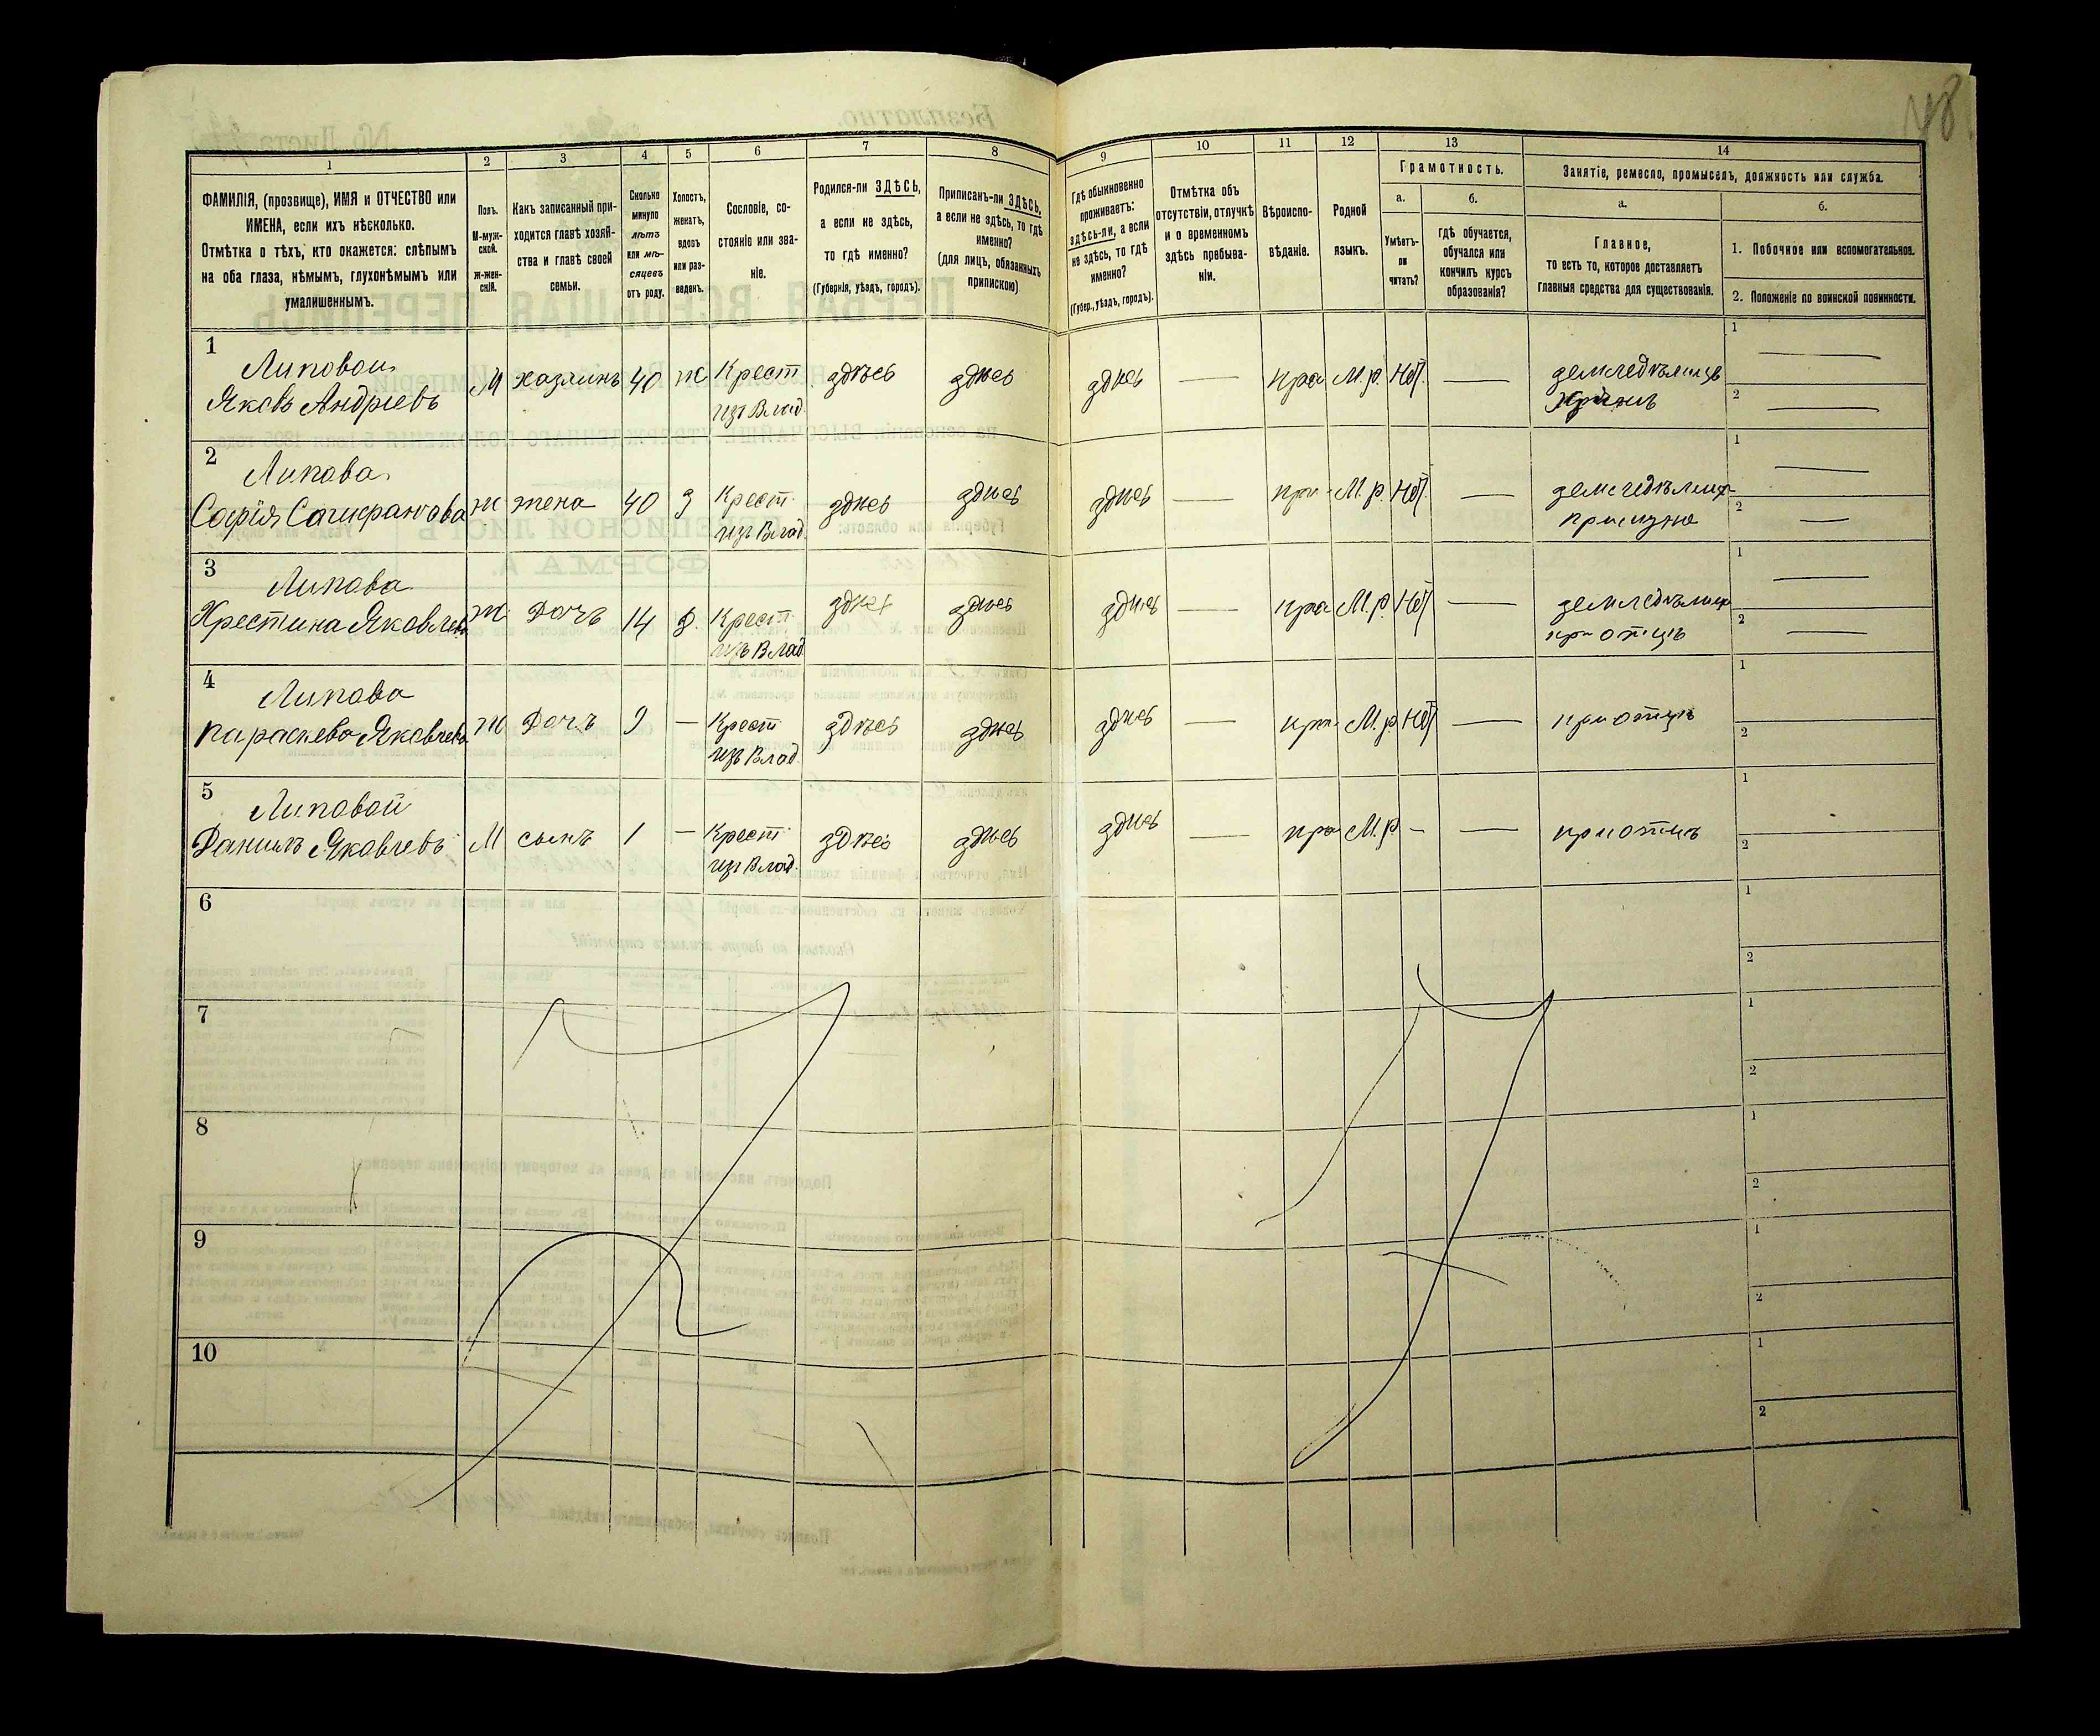 48
1 2 3 4 5 6 7 8 9 10 11 12 13 14
ФАМИЛІЯ, (прозвище), ИМЯ и ОТЧЕСТВО или
ИМЕНА, если ихъ нѣсколько.
Отмѣтка о тѣхъ, кто окажется: слѣпымъ
на оба глаза, нѣмымъ, глухонѣмымъ или
умалишеннымъ.
Полъ.
М-муж-
ской.
Ж-жен-
скій.
Какъ записанный при-
ходится главѣ хозяй-
ства и главѣ своей
семьи.
Сколько
минуло
лѣтъ
или мѣ-
сяцевъ
отъ роду.
Холостъ,
женатъ,
вдовъ
или раз-
веденъ.
Сословіе, со-
стояніе или зва-
ніе.
Родился-ли ЗДѢСЬ,
а если не здѣсь,
то гдѣ именно?
(Губернія, уѣздъ, городъ).
Приписанъ-ли ЗДѢСЬ,
а если не здѣсь, то гдѣ
именно?
(для лицъ, обязанныхъ
припискою)
Гдѣ обыкновенно
проживаетъ:
здѣсь-ли, а если
не здѣсь, то гдѣ
именно?
(Губер., уѣздъ, городъ).
Отмѣтка объ
отсутствіи, отлучкѣ
и о временномъ
здѣсь пребыва-
ніи.
Вѣроиспо-
вѣданіе.
Родной
языкъ.
Грамотность.
а. б.
Умѣетъ-
ли
читать?
гдѣ обучается,
обучался или
кончилъ курсъ
образованія?
Занятіе, ремесло, промыселъ, должность или служба.
а. б.
Главное,
то есть то, которое доставляетъ
главныя средства для существованія.
1. Побочное или вспомогательное.
2. Положеніе по воинской повинности.
1 Липовои
Яковъ Андріевъ М хазяинъ 40 ж Крест здѣсь здѣсь здѣсь — пра М.р. Нѣт — земледѣлецъ 1 —
изъ Влад. 2 —
2 Липова
Софія ж жена 40 з Крест здѣсь здѣсь здѣсь — пра М.р. Нѣт — 1 —
изъ Влад. при мужѣ 2 —
3 Липова
Крестина Яковлев ж Дочь 14 д. Крест здѣсь здѣсь здѣсь — пра М.р. Нѣт — 1 —
изъ Влад. при отцѣ 2 —
4 Липова
Параскева Яковлева ж Дочь 9 — Крест здѣсь здѣсь здѣсь — пра М.р. Нѣт — при отцѣ 1
изъ Влад. 2
5 Липовой
Данилъ Яковлевъ М сынъ 1 — Крест здѣсь здѣсь здѣсь — пра М.р — — при отцѣ 1
изъ Влад. 2
6 1
2
7 1
2
8 1
2
9 1
2
10 1
2